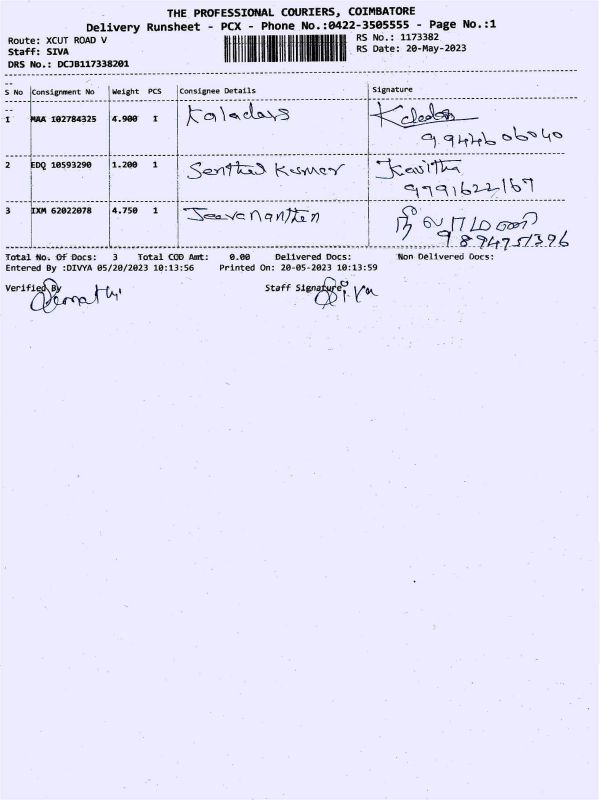 THE PROFESSIONAL COURIERS, COIMBATORE
Delivery Runsheet - PCX - Phone No.:0422-3505555 - Page No.:1
Route: XCUT ROAD V RS No.: 1173382
Staff: SIVA RS Date: 20-May-2023
DRS No.: DCJB117338201
S No Consignment No Weight PCS Consignee Details Signature
1 MAA 102784325 4.900 1
9944606040
2 EDQ 10593290 1.200 1 Senthil Kumar Kavitha
9791622167
3 IXM 62022078 4.750 1 Jeevananthen
9894751396
Total No. Of Docs: 3 Total COD Amt: 0.00 Delivered Docs: Non Delivered Docs:
Entered By :DIVYA 05/20/2023 10:13:56 Printed On: 20-05-2023 10:13:59
Verified By Staff Signature
Siva